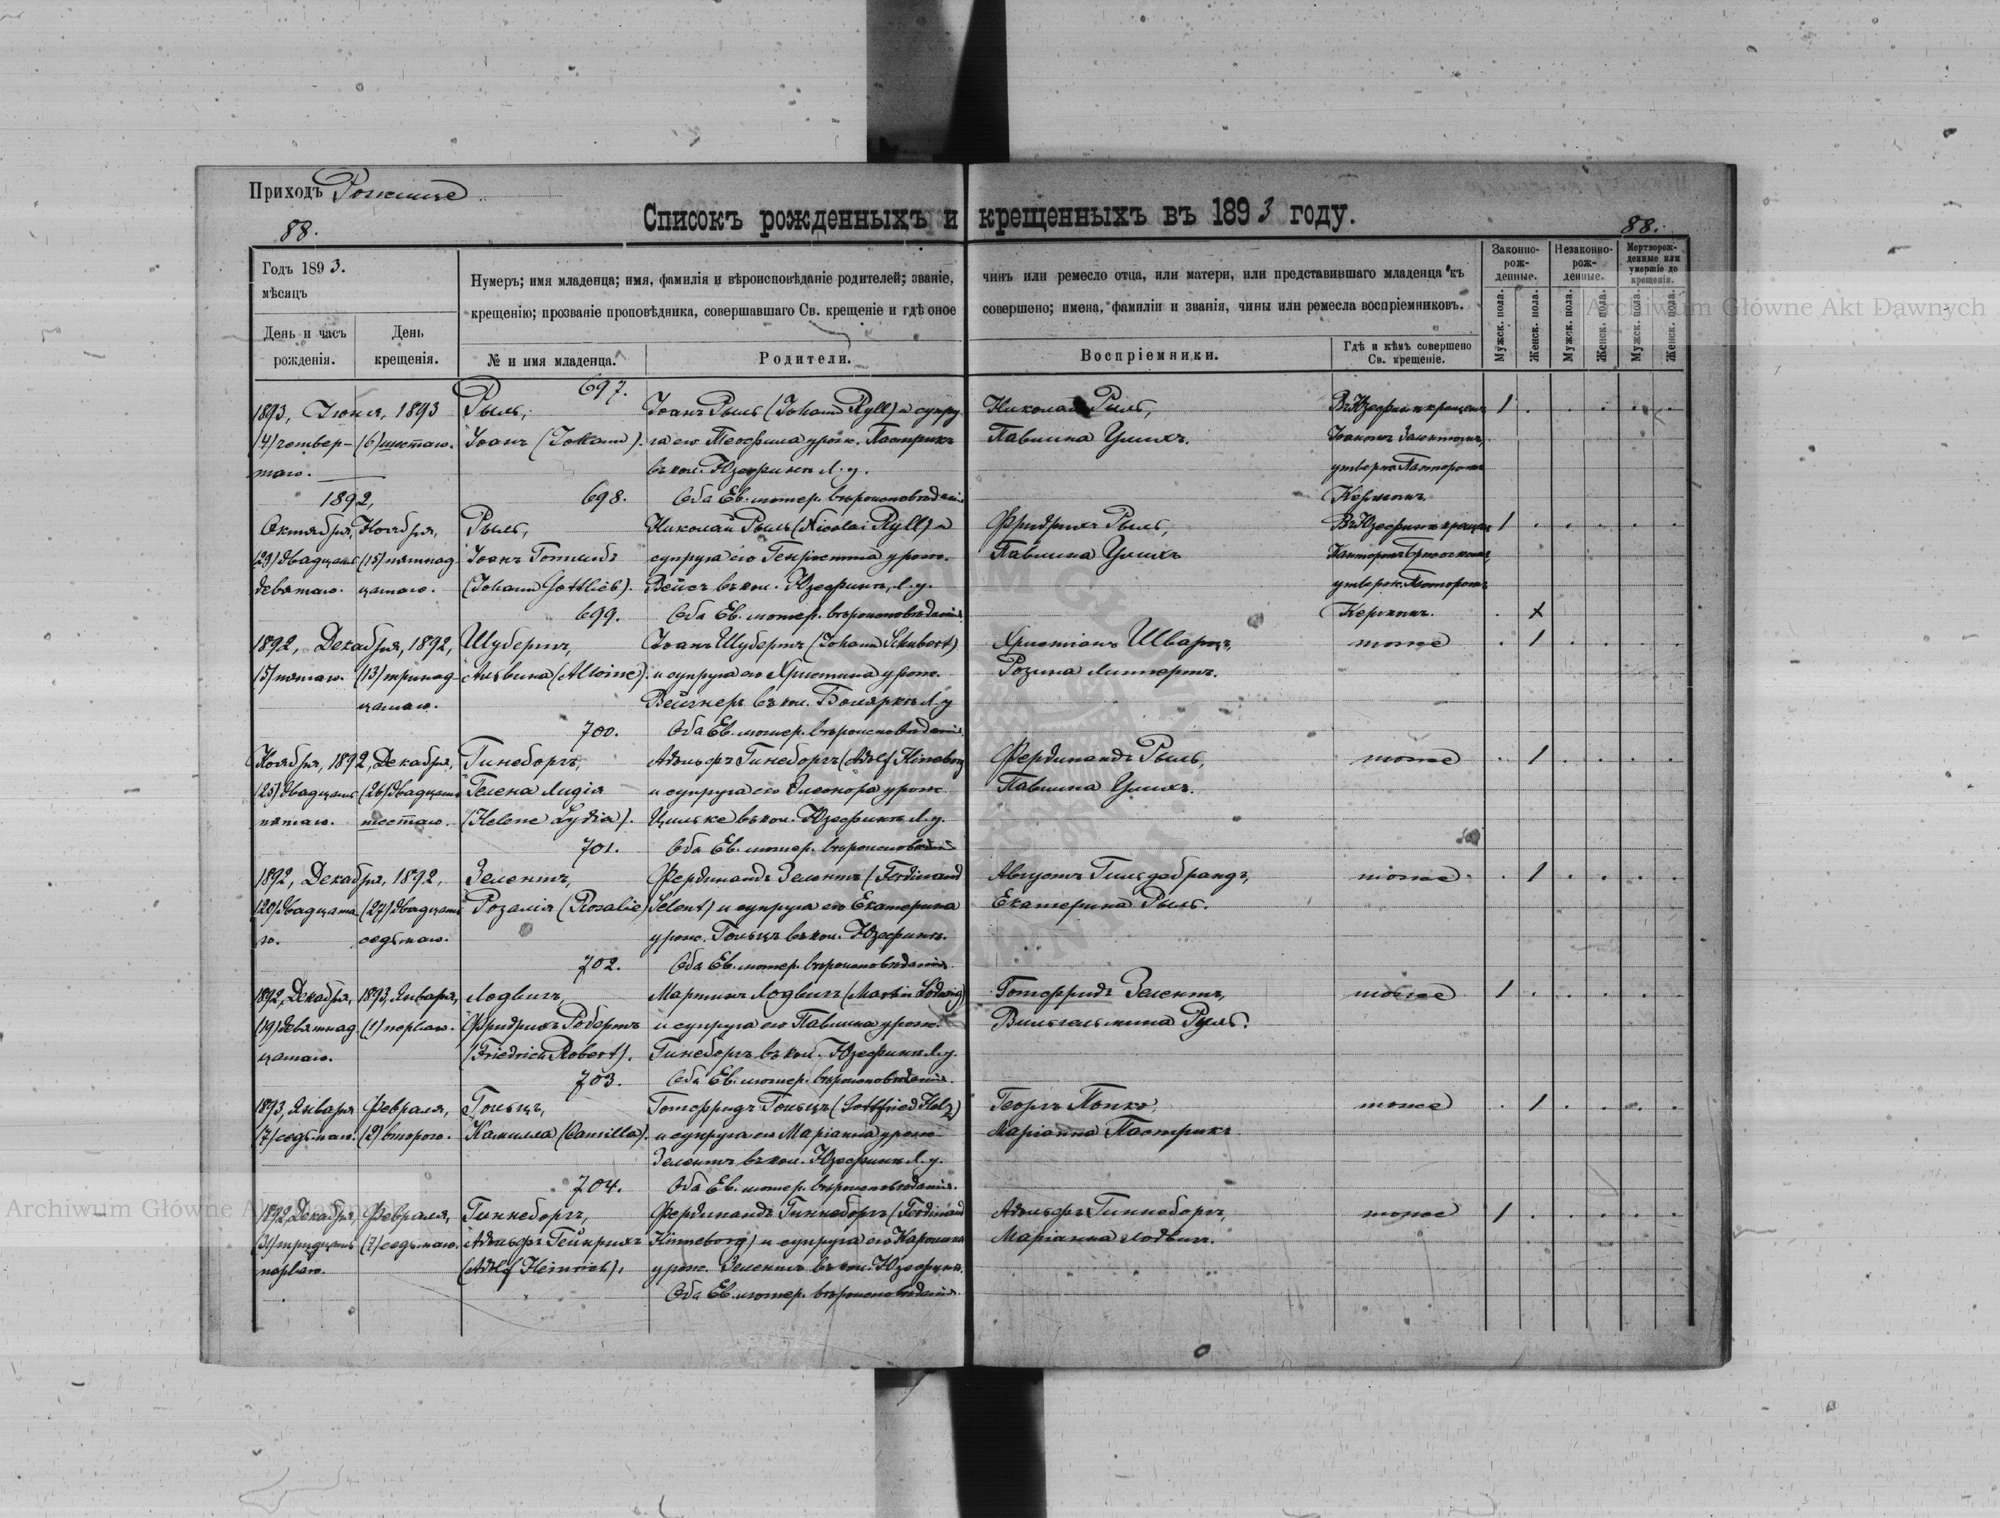 Приходъ Рожище
88.
Списокъ рожденныхъ и крещенныхъ въ 1893 году.
88.
Годъ 1893.
мѣсяцъ
День и часъ рожденія.
День крещенія.
Нумеръ; имя младенца; имя, фамилія и вѣроисповѣданіе родителей; званіе, чинъ или ремесло отца, или матери, или представившаго младенца къ
крещенію; прозваніе проповѣдника, совершавшаго Св. крещеніе и гдѣ оное совершено; имена, фамиліи и званія, чины или ремесла воспріемниковъ.
№ и имя младенца.
Родители.
Воспріемники.
Гдѣ и кѣмъ совершено Св. крещеніе.
Законно-рож-денные.
Незаконно-рож-денные.
Мертворож-денные или умершіе до крещенія.
Мужск. пола.
Женск. пола.
Мужск. пола.
Женск. пола.
Мужск. пола.
Женск. пола.
697.
1893, Іюня, 1893 Рыль, Іоанъ Рыль (Johann Ryll) и супру Николай Рыль, 1
(4) четвер- (6) шестаго. Іоанъ (Johann). га его Теофила урож. Пастрикъ Павлина Улихъ.
таго. въ кол. Юзефинъ Л. у.
1892, 698. Оба Ев. лютер. вѣроисповѣданія
Октября, Ноября, Рыль, Николай Рыль (Nicolai Ryll) и Фридрихъ Рыль, 1
(29) двадцать (15) пятнад Іоанъ Готлибъ супруга его Генріетта урож. Павлина Улихъ
девятаго. цатаго. (Johann Gottlieb). Вейсъ въ кол. Юзефинъ, Л. у.
699. Оба Ев. лютер. вѣроисповѣданія
1892, Декабря, 1892, Шубертъ, Іоанъ Шубертъ (Johann Schubert) Христіанъ Шварцъ, тоже 1
(5) пятаго. (13) тринад Альвина (Alwine). и супруга его Христина урож. Розина Липпертъ.
цатаго. въ кол. Боярка Л. у
700. Оба Ев. лютер. вѣроисповѣданія
Ноября, 1892, Декабря, Гинеборгъ, Адольфъ Гинеборгъ (Adolf Hinneborg Фердинандъ Рыль, тоже 1
(25) двадцать (26) двадцать Гелена Лидія и супруга его Элеонора урож. Павлина Улихъ.
пятаго. шестаго. (Helene Lydia). Цильке въ кол. Юзефинъ Л. у.
701. Оба Ев. лютер. вѣроисповѣданія
1892, Декабря, 1892, Зелентъ, Фердинандъ Зелентъ (Ferdinand Августъ Гильдебрандъ, тоже 1
(20) двадцата (27) двадцать Розалія (Rosalie) Selent) и супруга его Екатерина Екатерина Рыль.
го. седьмаго. урож. Гольцъ въ кол. Юзефинъ.
702. Оба Ев. лютер. вѣроисповѣданія
1892, Декабря, 1893, Января, Лодвигъ, Мартинъ Лодвигъ (Martin Lodwig) Готфридъ Зелентъ, тоже 1
(19) девятнад (1) перваго. Фридрихъ Робертъ и супруга его Павлина урож.
цатаго. (Friedrich Robert). Гинеборгъ въ кол. Юзефинъ Л. у.
703. Оба Ев. лютер. вѣроисповѣданія.
1893, Января Февраля, Гольцъ, Готфридъ Гольцъ (Gottfried Holz) Георгъ тоже 1
(7) седьмаго. (2) втораго. Камилла (Camilla). и супруга его Маріанна урож. Маріанна Пастрикъ
Зелентъ въ кол. Юзефинъ Л. у.
704. Оба Ев. лютер. вѣроисповѣданія.
1892, Декабря, Февраля, Гиннеборгъ, Фердинандъ Гиннеборгъ (Ferdinand Адольфъ Гиннеборгъ, тоже 1
(31) тридцать (7) седьмаго. Адольфъ Гейнрихъ Hinneborg) и супруга его Каролина Маріанна Лодвигъ.
перваго. (Adolf Heinrich), урож. Зелентъ въ кол. Юзефинъ.
Оба Ев. лютер. вѣроисповѣданія.
Archiwum Główne Akt Dawnych
Archiwum Główne Akt Dawnych